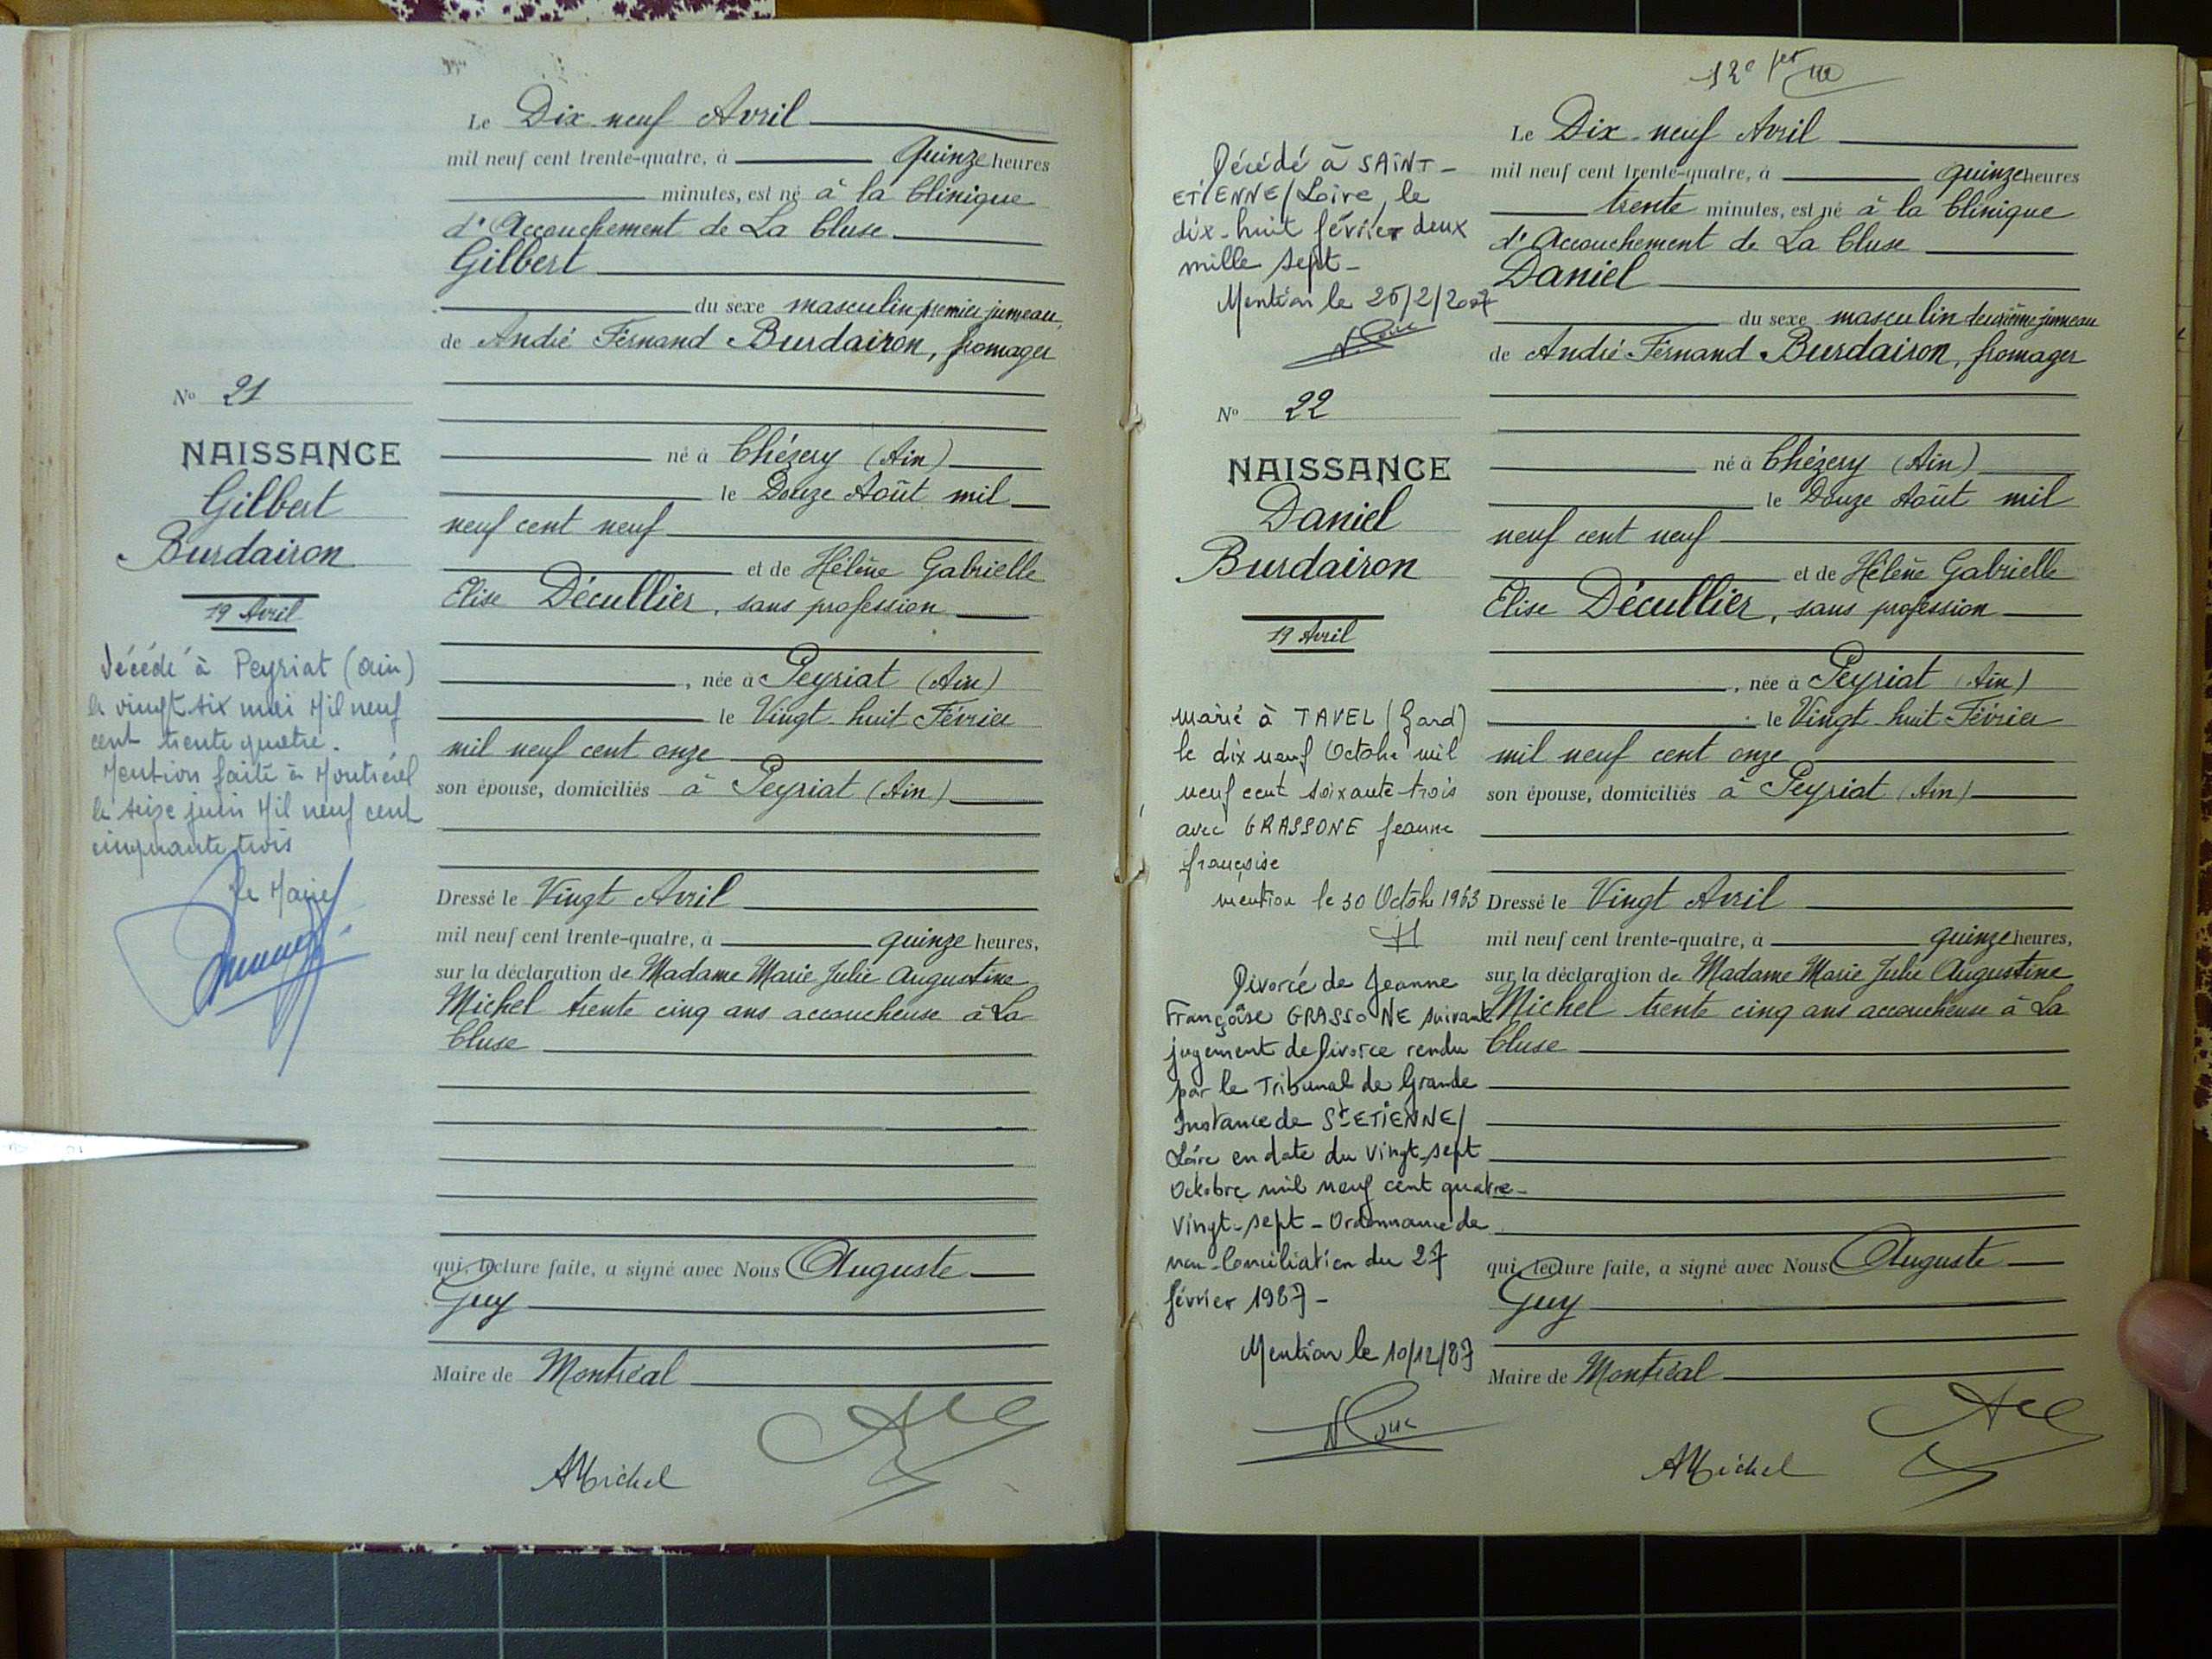 Le Dix neuf Avril
mil neuf cent trente-quatre, à quinze heures
minutes, est né à la Clinique
d'Accouchement de La Cluse
Gilbert
du sexe masculin premier jumeau,
de André Fernand Burdairon, fromager
né à Chézery (Ain)
le Douze Août mil
neuf cent neuf
et de Hélène Gabrielle
Elise Décullier, sans profession
, née à Peyriat (Ain)
le Vingt huit Février
mil neuf cent onze
son épouse, domiciliés à Peyriat (Ain)
Dressé le Vingt Avril
mil neuf cent trente-quatre, à quinze heures,
sur la déclaration de Madame Marie Julie Augustine
Michel trente cinq ans accoucheuse à La
Cluse
qui, lecture faite, a signé avec Nous Auguste
Guy
Maire de Montréal
AMichel
No 21
NAISSANCE
Gilbert
Burdairon
19 Avril
Décédé à Peyriat (Ain)
le vingt six mai Mil neuf
cent trente quatre.
Mention faite à Montréal
le seize juin Mil neuf cent
cinquante trois
Le Maire
Le Dix-neuf Avril
mil neuf cent trente-quatre, à quinze heures
trente minutes, est né à la Clinique
d'Accouchement de La Cluse
Daniel
du sexe masculin deuxième jumeau
de André Fernand Burdairon, fromager
né à Chézery (Ain)
le Douze Août mil
neuf cent neuf
et de Hélène Gabrielle
Elise Décullier, sans profession
, née à Peyriat (Ain)
le Vingt huit Février
mil neuf cent onze
son épouse, domiciliés à Peyriat (Ain)
Dressé le Vingt Avril
mil neuf cent trente-quatre, à quinze heures,
sur la déclaration de Madame Marie Julie Augustine
Michel trente cinq ans accoucheuse à La
Cluse
qui, lecture faite, a signé avec Nous Auguste
Guy
Maire de Montréal
AMichel
Décédé à SAINT-
ETIENNE/Loire, le
dix-huit février deux
mille sept-
Mention le 26/2/2007
No 22
NAISSANCE
Daniel
Burdairon
19 Avril
Marié à TAVEL (Gard)
le dix neuf Octobre mil
neuf cent soixante-trois
avec GRASSONE Jeanne
Françoise
mention le 30 Octobre 1963
Divorcé de Jeanne
Françoise GRASSONE suivant
jugement de Divorce rendu
par le Tribunal de Grande
Instance de St-ETIENNE/
Loire en date du vingt-sept
Octobre mil neuf cent quatre-
vingt-sept - Ordonnance de
non-Conciliation du 27
février 1987-
Mention le 10/12/87